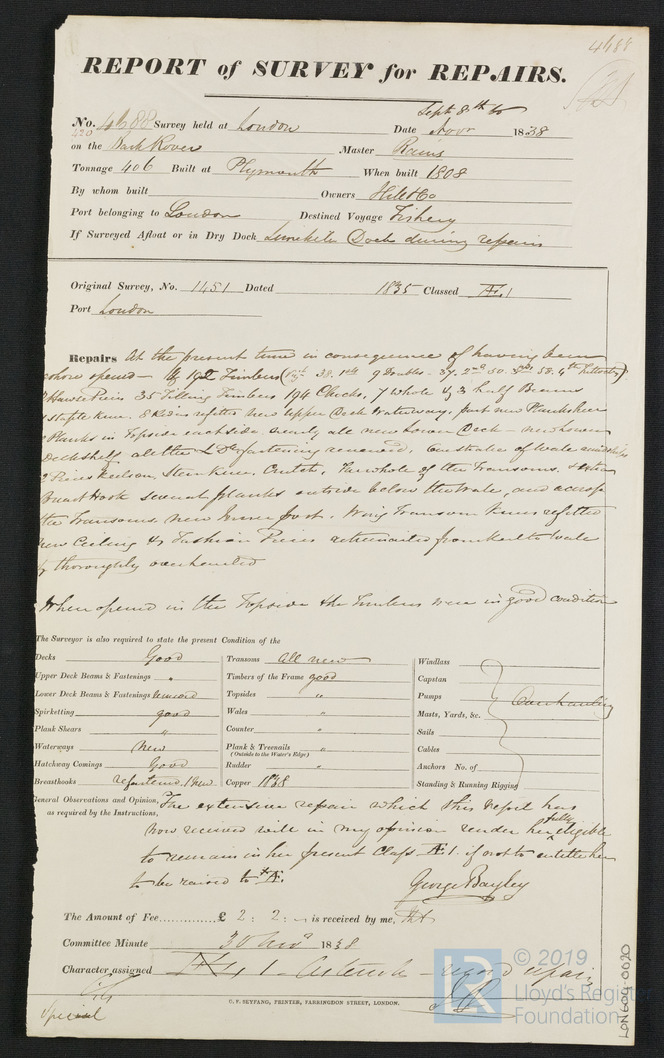 4688
REPORT of SURVEY for REPAIRS.
No. 4688 Survey held at London Date Sept 8th to Novr 1838
on the Dark Rover Master Rains
Tonnage 406 Built at Plymouth When built 1808
By whom built Owners Hill & Co
Port belonging to London Destined Voyage Fishery
If Surveyed Afloat or in Dry Dock Limekiln Dock during repairs
Original Survey, No. 1451 Dated 1835 Classed Æ.1
Port London
Repairs At the present time in consequence of having been
opened 192 Timbers 38. 1st 9 Doubles 37. 2nd 50. 3rd 58. 4th Futtocks
Hawse Peices 35 Filling Timbers 194 Chocks, 7 whole & 3 half Beams
refitted New Upper Deck Waterways, part new Planksheer
Planks in Topside each side nearly all new Lower Deck - new Lower
Deckshelf all the fastening renewed, of Wale amidships
2 Peices Keelson, Stern Knee, Crutch, The whole of the Transoms
Breast Hook several planks outside below the Wale, and across
the Transoms new Inner post. Wing Transom Knees refitted
new Ceiling & Fashion Peices from Keel to Wale
& thoroughly overhauled
When opened in the Topside the Timbers were in good condition
The Surveyor is also required to state the present Condition of the
Decks Good
Upper Deck Beams & Fastenings "
Lower Deck Beams & Fastenings renewed
Spirketting good
Plank Shears "
Waterways New
Hatchway Comings Good
Breasthooks refastened 1 New
Transoms all new
Timbers of the Frame good
Topsides "
Wales "
Counter "
Plank & Treenails "
(Outside to the Water's Edge)
Rudder "
Copper 1838
Windlass
Capstan
Pumps
Masts, Yards, &c. Overhauling
Sails
Cables
Anchors No. of
Standing & Running Rigging
General Observations and Opinion, The extensive repair which this Vessel has
as required by the Instructions, now received will in my opinion render her fully eligible
to remain in her present Class Æ1. if not to entitle her
to be raised to *Æ.
George Bayley
The Amount of Fee.............. £ 2 : 2 : - is received by me,
Committee Minute 30 Novr 1838
Character assigned Æ 1 - Asterisk - record repairs
Special
C. F. SEYFANG, PRINTER, FARRINGDON STREET, LONDON.
© 2019
Lloyd's Register
Foundation
LON604-0020